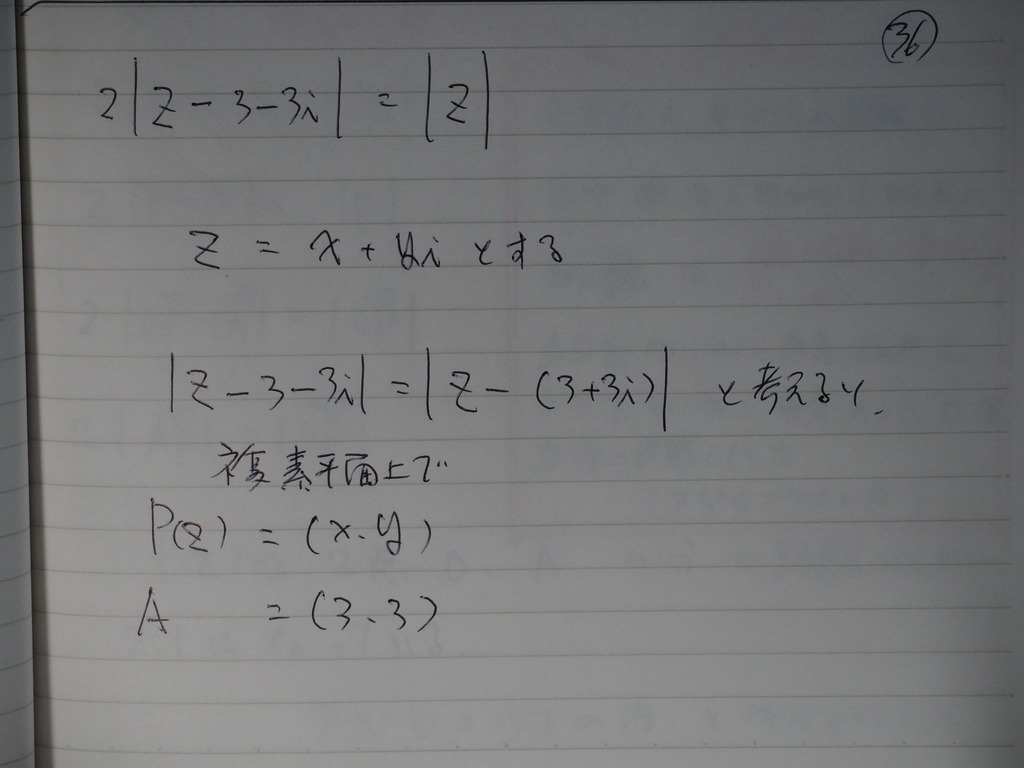 36
2|z-3-3i| = |z|
z = x + yi とする
|z-3-3i| = |z-(3+3i)| と考えると、
複素平面上で
P(z) = (x.y)
A = (3、3)